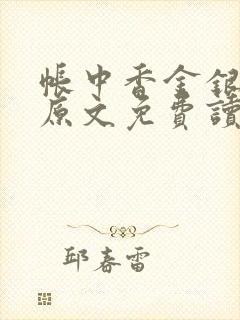 帳中香金銀
原文免費讀
邱春雷